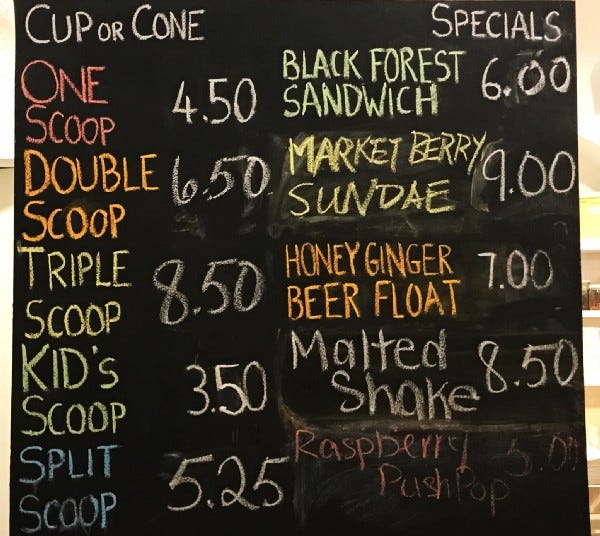 CUP OR CONE
ONE
SCOOP
4.50
DOUBLE
SCOOP
6.50
TRIPLE
SCOOP
8.50
KID'S
SCOOP
3.50
SPLIT
SCOOP
5.25
SPECIALS
BLACK FOREST
SANDWICH
6.00
MARKET BERRY
SUNDAE
9.00
HONEY GINGER
BEER FLOAT
7.00
Malted
Shake
8.50
Raspberry
PushPop
5.00